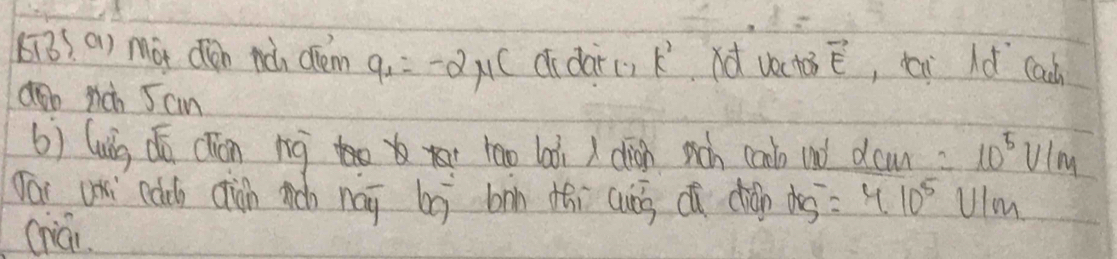 BT3: a) Một điện tích điểm q₁ = -2 μC đc đặt k². Xđ vectơ E⃗, tại 1 đ' cách
điện tích 5cm
b) Cường độ điện trg tạo bởi 1 điện tích cách nó 2cm = 10⁵ V/m
Tại vị trí cách điện tích này bằng bnh thì cường độ điện trg = 4.10⁵ V/m
Giải.